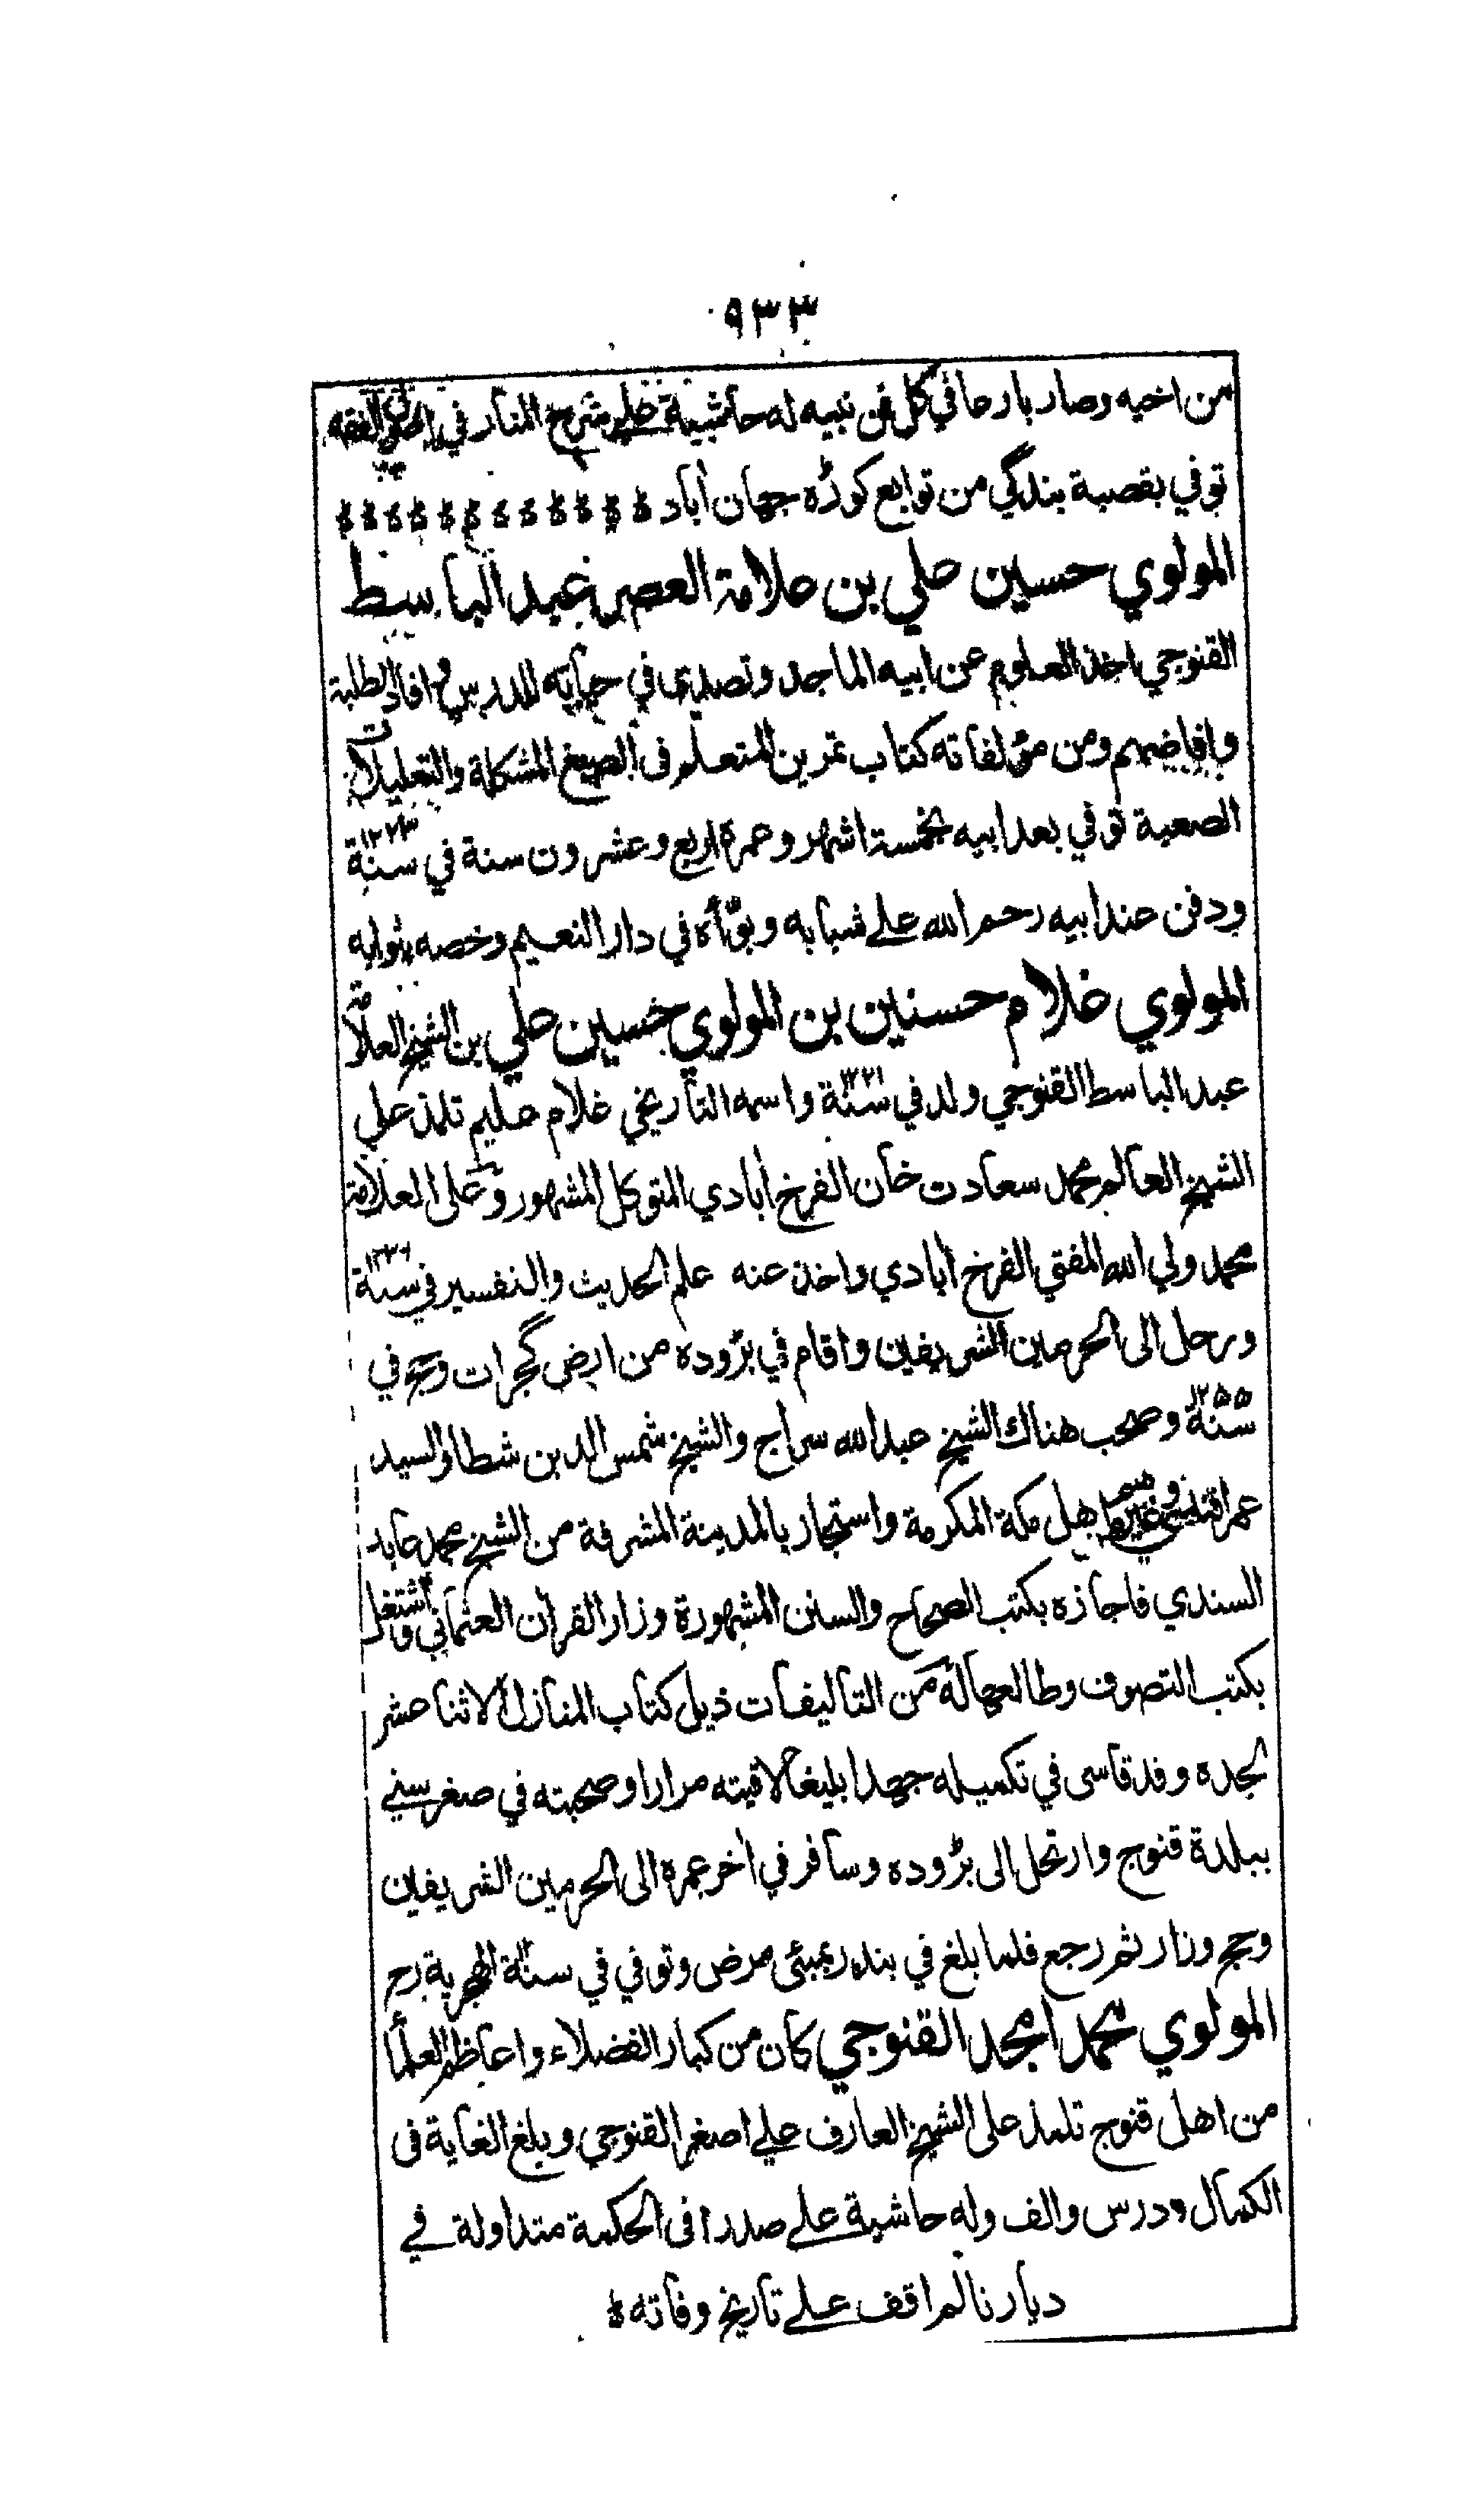 ٩٣٣
من اخيه وصار بارعا في كل فن نبيه له حاشية على شرح المنار في اصول الفقه
توفي بقصبة بندگي من توابع كوڑه جهان اباد
المولوي حسين علي بن علامة العصر عبد الباسط
القنوجي اخذ العلوم عن ابيه الماجد وتصدى في حياته للدرس وافاد الطلبة
وافاضهم ومن مؤلفاته كتاب تمرين المتعلم في الصيغ المشكلة والتعليلات
الصعبة توفي بعد ابيه بخمسة اشهر وعمره اربع وعشرون سنة في سنة ١٢٢٣
ودفن عند ابيه رحم الله على شبابه وبوّأه في دار النعيم وخصه بثوابه
المولوي غلام حسنين بن المولوي حسين علي بن الشيخ العلامة
عبد الباسط القنوجي ولد في سنة ١٢٢١ واسمه التاريخي غلام حليم تلمذ على
الشيخ العالم محمد سعادت خان الفرخ ابادي المتوكل المشهور وعلى العلامة
محمد ولي الله المفتي الفرخ ابادي واخذ عنه علم الحديث والتفسير في سنة
ورحل الى الحرمين الشريفين واقام في بڑوده من ارض گجرات وحج في
سنة ١٢٥٥ وصحب هناك الشيخ عبد الله سراج والشيخ شمس الدين شطا والسيد
عمر افندي وغيرهم اهل مكة المكرمة واستجاز بالمدينة المشرفة من الشيخ محمد عابد
السندي فاجازه بكتب الصحاح والسنن المشهورة وزار القران العثماني واشتغل
بكتب التصوف وطالعها له من التاليفات ذيل كتاب المنازل الاثنا عشر
لجده وقد قاسى في تكميله جهدا بليغا لاقيته مرارا وصحبته في صغر سني
ببلدة قنوج وارتحل الى بڑوده وسافر في اخر عمره الى الحرمين الشريفين
وحج وزار ثم رجع فلما بلغ في بندر بمبئى مرض وتوفي في سنة الهجرية رح
المولوي محمد امجد القنوجي كان من كبار الفضلاء واعاظم العلما
من اهل قنوج تلمذ على الشيخ العارف علي اصغر القنوجي وبلغ الغاية في
الكمال ودرس والف وله حاشية على صدرا في الحكمة متداولة في
ديارنا لم اقف على تاريخ وفاته